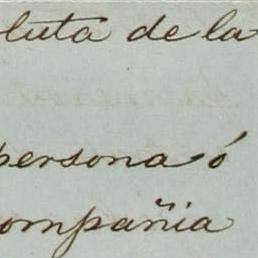 luta de la
persona ó
ompañia